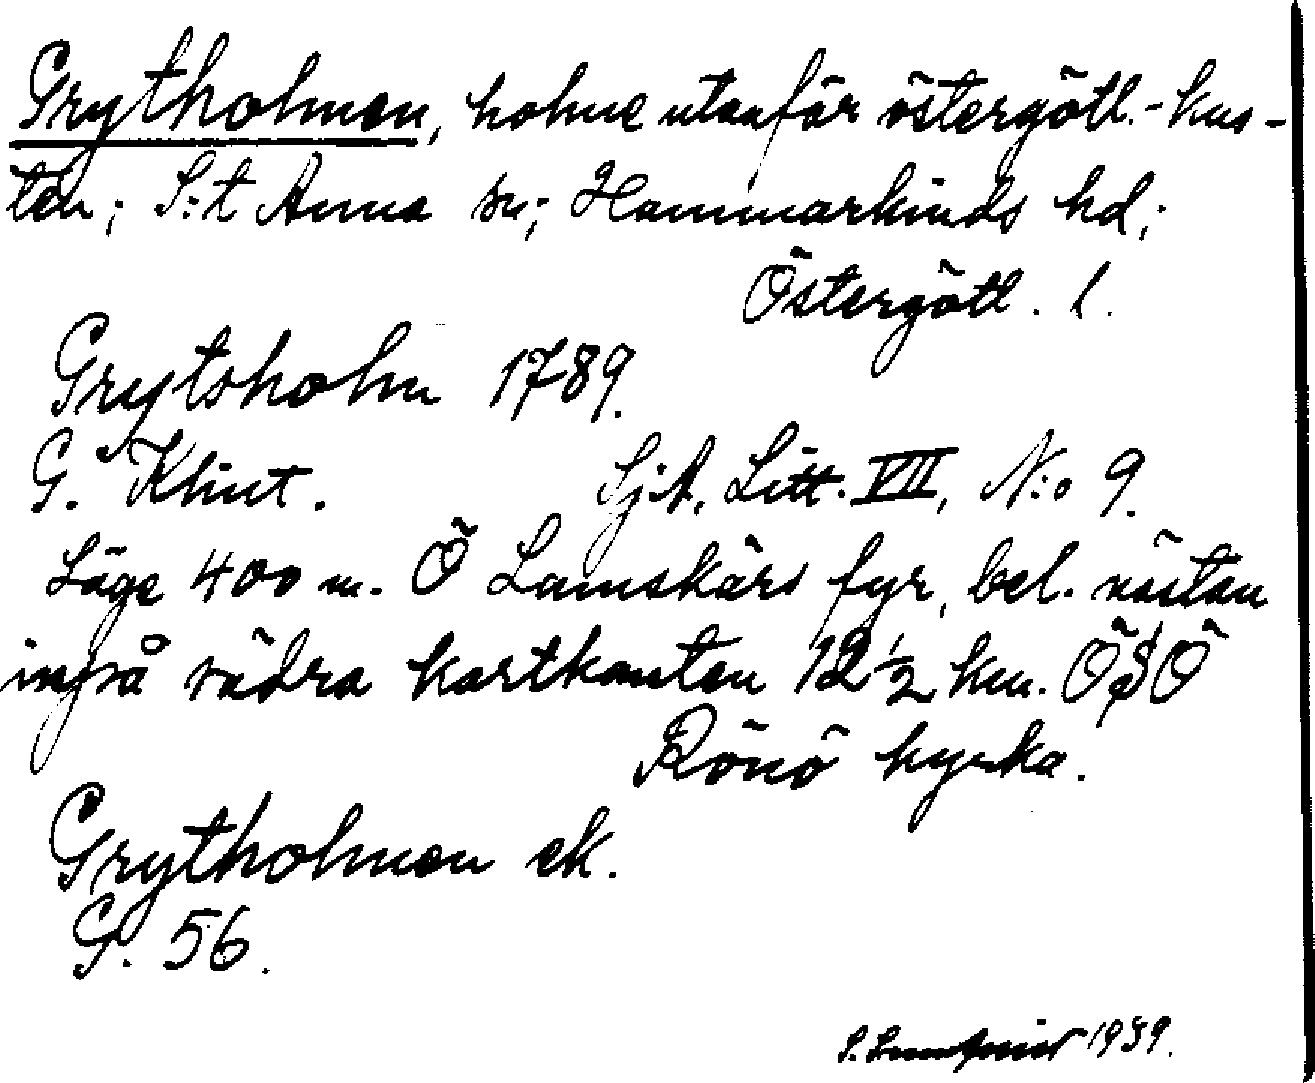 Grytholmen, holme utanför östergötl.-kus-
ten; S:t Anna sn; Hammarkinds hd;
Östergötl. l.
Grytsholm 1789.
G. Klint. Sj.A. Litt. VII, N:o 9.
Läge 400 m. Ö Lamskärs fyr, bel. nästan
inpå södra kartkanten 12 1/2 km. ÖSÖ
Rönö kyrka.
Grytholmen ek.
G. 56.
S. 1939.